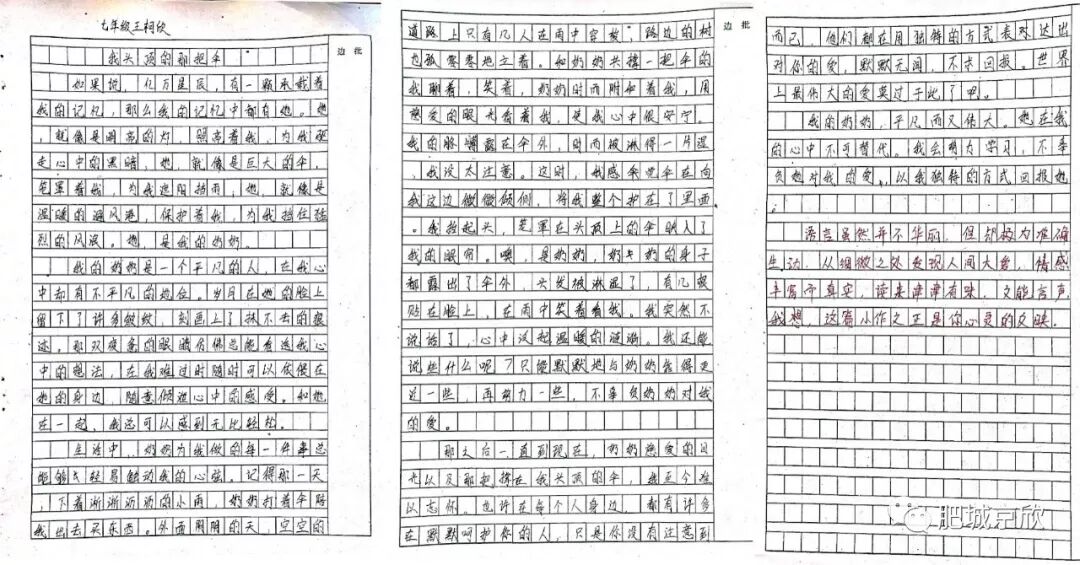 七年级王柯欣
边 批
我头顶的那把伞
如果说,亿万星辰,有一颗承载着
我的记忆,那么我的记忆中都有她。她
,就像是明亮的灯,照亮着我,为我驱
走心中的黑暗,她,就像是巨大的伞,
笼罩着我,为我遮阳挡雨,她,就像是
温暖的避风港,保护着我,为我挡住猛
烈的风浪。她,是我的奶奶。
我的奶奶是一个平凡的人,在我心
中却有不平凡的地位。岁月在她的脸上
留下了许多皱纹,刻画上了抹不去的痕
迹。那双疲惫的眼睛仿佛总能看透我心
中的想法,在我难过时随时可以依偎在
她的身边,随意倾诉心中的感受。和她
在一起,我总可以感到无比轻松。
生活中,奶奶为我做的每一件事总
能够轻易触动我的心弦。记得那一天
,下着淅淅沥沥的小雨,奶奶打着伞陪
我出去买东西。外面阴阴的天,空空的
边 批
道路上只有几人在雨中穿梭,路边的树
也孤零零地立着。和奶奶共撑一把伞的
我聊着,笑着,奶奶时而附和着我,用
慈爱的眼光看着我,使我心中很安宁。
我的胳膊露在伞外,时而被淋得一片湿
,我没太注意。这时,我感觉伞在向
我这边微微倾倒,将我整个护在了里面
。我抬起头,笼罩在头顶上的伞映入了
我的眼帘。噢,是奶奶,奶奶的身子
都露出了伞外,头发被淋湿了,有几根
贴在脸上,在雨中笑着看我。我突然不
说话了,心中泛起温暖的涟漪。我还能
说些什么呢?只能默默地与奶奶靠得更
近一些,再努力一些,不辜负奶奶对我
的爱。
那之后一直到现在,奶奶慈爱的目
光以及那把撑在我头顶的伞,我至今难
以忘怀。也许在每个人身边,都有许多
在默默呵护你的人,只是你没有注意到
而已,他们都在用独特的方式表达出
对你的爱,默默无闻,不求回报。世界
上最伟大的爱莫过于此了吧。
我的奶奶,平凡而又伟大。她在我
的心中不可替代。我会努力学习,不辜
负她对我的爱,以我独特的方式回报她
。
语言虽然并不华丽,但却极为准确
生动,从细微之处发现人间大爱,情感
丰富而真实,读来津津有味,文能言声,
我想,这篇小作文正是你心灵的反映。
肥城京欣